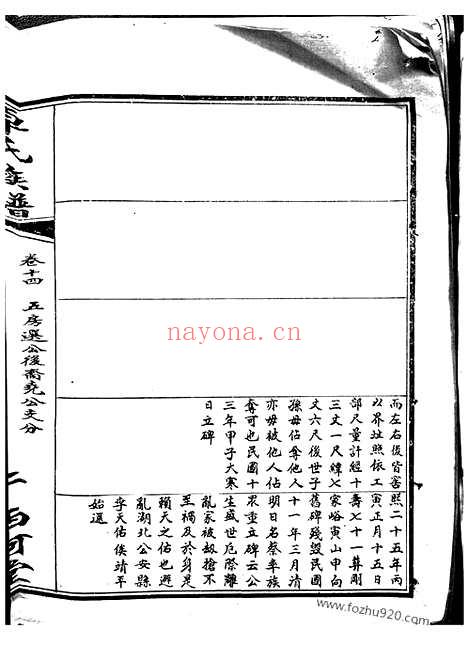 nayona.cn
而左右後皆窖
以界址照依工
部尺量許經十
三丈一尺緯七
丈六尺後世子
孫毋佔奪他人
亦毋被他人佔
奪可也民國十
三年甲子大寒
日立碑
熙二十五年丙
寅正月十五日
壽七十一葬剛
家峪寅山甲向
舊碑殘毀民國
十一年三月清
明日名蔡率族
眾重立碑云公
生盛世厄際離
亂家被劫搶不
至禍及於身是
賴天之佑也避
亂湖北公安縣
李天佑俟靖平
始還
氏族譜
卷十四 五房選公後裔堯公支分
西河堂
www.fozhu920.com